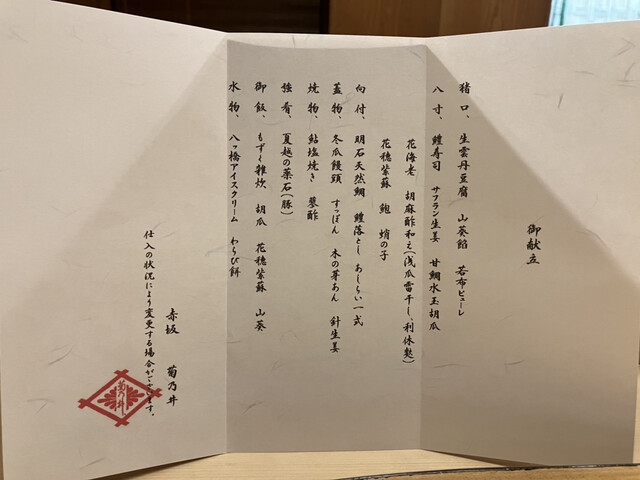 御献立
猪口、 生雲丹豆腐 山葵餡 若布ピューレ
八寸、 鱧寿司 サフラン生姜 甘鯛水玉胡瓜
花海老 胡麻酢和え(浅瓜雷干し、利休麩)
花穂紫蘇 鮑 蛸の子
向付、 明石天然鯛 鱧落とし あしらい一式
蓋物、 冬瓜饅頭 すっぽん 木の芽あん 針生姜
焼物、 鮎塩焼き 蓼酢
強肴、 夏越の薬石(豚)
御飯、 もずく雑炊 胡瓜 花穂紫蘇 山葵
水物、 八ッ橋アイスクリーム わらび餅
赤坂 菊乃井
仕入の状況により変更する場合がございます。
菊乃井